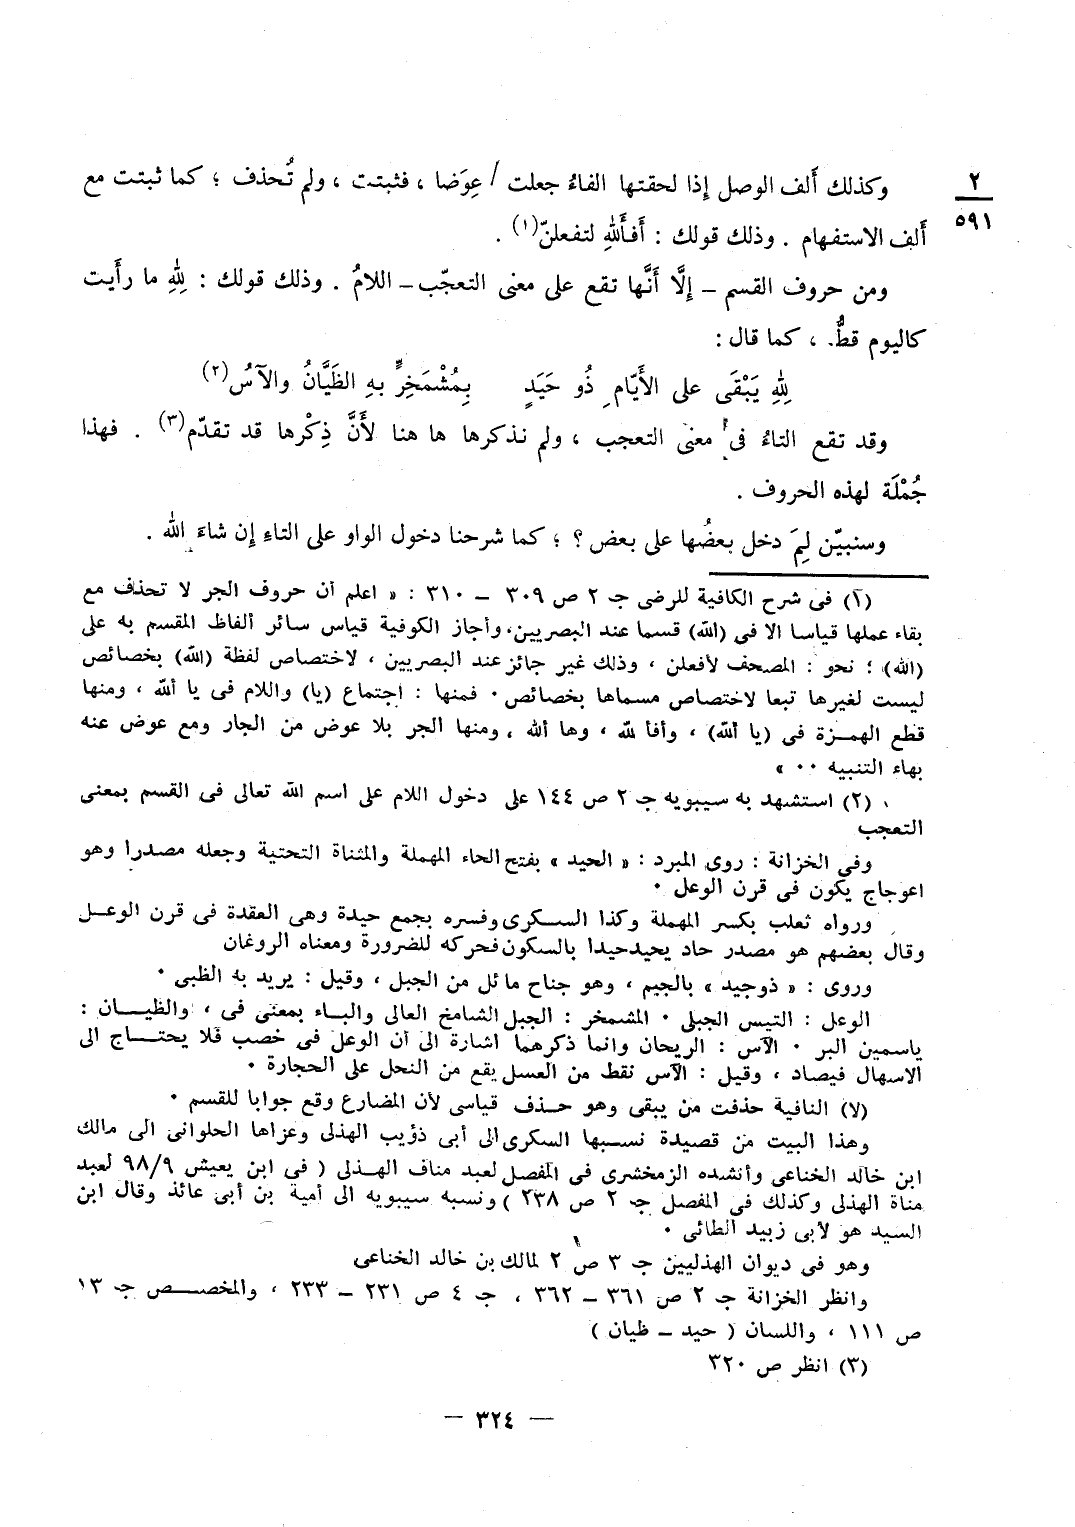 ٢
٥٩١
وكذلك أَلف الوصل إِذا لحقتها الفاءُ جعلت / عِوَضا ، فثبتت ، ولم تُحذف ؛ كما ثبتت مع
أَلف الاستفهام . وذلك قولك : أَفأَللهِ لتفعلنّ(١) .
ومن حروف القسم – إِلَّا أَنَّها تقع على معنى التعجّب – اللامُ . وذلك قولك : لِلهِ ما رأَيت
كاليوم قطُّ ، كما قال :
لِلهِ يَبْقَى على الأَيّامِ ذُو حَيَدٍ بِمُشْمَخِرٍّ بهِ الظَيَّانُ والآسُ(٢)
وقد تقع التاءُ فى معنى التعجب ، ولم نذكرها ها هنا لأَنَّ ذِكْرها قد تقدّم(٣) . فهذا
جُمْلَة لهذه الحروف .
وسنبيّن لِمَ دخل بعضُها على بعض ؟ ؛ كما شرحنا دخول الواو على التاءِ إِن شاءَ الله .
(١) فى شرح الكافية للرضى جـ ٢ ص ٣٠٩ – ٣١٠ : « اعلم أن حروف الجر لا تحذف مع
بقاء عملها قياسا الا فى (الله) قسما عند البصريين، وأجاز الكوفية قياس سائر ألفاظ المقسم به على
(الله) ؛ نحو : المصحف لأفعلن ، وذلك غير جائز عند البصريين ، لاختصاص لفظة (الله) بخصائص
ليست لغيرها تبعا لاختصاص مسماها بخصائص ٠ فمنها : اجتماع (يا) واللام فى يا ألله ، ومنها
قطع الهمـزة فى (يا ألله) ، وأفأ لله ، وها ألله ، ومنها الجر بلا عوض من الجار ومع عوض عنه
بهاء التنبيه ٠٠ »
(٢) استشهد به سيبويه جـ ٢ ص ١٤٤ على دخول اللام على اسم الله تعالى فى القسم بمعنى
التعجب
وفى الخزانة : روى المبرد : « الحيد » بفتح الحاء المهملة والمثناة التحتية وجعله مصدرا وهو
اعوجاج يكون فى قرن الوعل ٠
ورواه ثعلب بكسر المهملة وكذا السـكرى وفسره بجمع حيدة وهى العقدة فى قرن الوعـل
وقال بعضهم هو مصدر حاد يحيد حيدا بالسكون فحركه للضرورة ومعناه الروغان
وروى : « ذو جيد » بالجيم ، وهو جناح مائل من الجبل ، وقيل : يريد به الظبى ٠
الوعل : التيس الجبلى ٠ المشمخر : الجبل الشامخ العالى والبـاء بمعنى فى ، والظيـان :
ياسمين البر ٠ الآس : الريحان وانما ذكرهما اشارة الى أن الوعل فى خصب فلا يحتـاج الى
الاسهال فيصاد ، وقيل : الآس نقط من العسل يقع من النحل على الحجارة ٠
(لا) النافية حذفت من يبقى وهو حـذف قياسى لأن المضارع وقع جوابا للقسم ٠
وهذا البيت من قصيدة نسـبها السكرى الى أبى ذؤيب الهذلى وعزاها الحلوانى الى مالك
ابن خالد الخناعى وأنشده الزمخشرى فى المفصل لعبد مناف الهـذلى ( فى ابن يعيش ٩/٩٨ لعبد
مناة الهذلى وكذلك فى المفصل جـ ٢ ص ٢٣٨ ) ونسبه سيبويه الى أمية بن أبى عائذ وقال ابن
السيد هو لأبى زبيد الطائى ٠
وهو فى ديوان الهذليين جـ ٣ ص ٢ لمالك بن خالد الخناعى
وانظر الخزانة جـ ٢ ص ٣٦١ – ٣٦٢ ، جـ ٤ ص ٢٣١ – ٢٣٣ ، والمخصـص جـ ١٣
ص ١١١ ، واللسان ( حيد – ظيان )
(٣) انظر ص ٣٢٠
– ٣٢٤ –